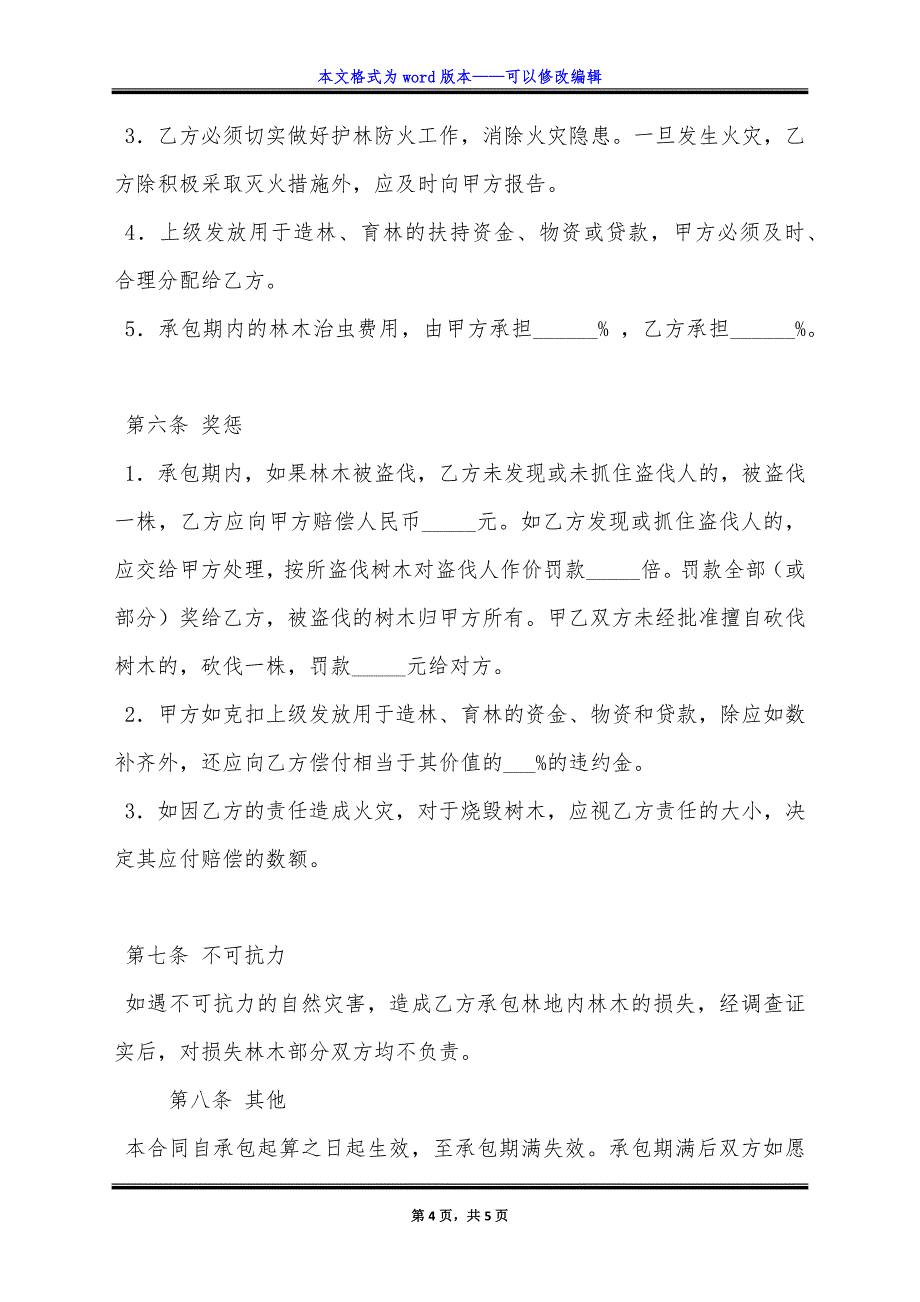 本文格式为 word 版本——可以修改编辑
3．乙方必须切实做好护林防火工作，消除火灾隐患。一旦发生火灾，乙
方除积极采取灭火措施外，应及时向甲方报告。
4．上级发放用于造林、育林的扶持资金、物资或贷款，甲方必须及时、
合理分配给乙方。
5．承包期内的林木治虫费用，由甲方承担______% ，乙方承担______%。
第六条 奖惩
1．承包期内，如果林木被盗伐，乙方未发现或未抓住盗伐人的，被盗伐
一株，乙方应向甲方赔偿人民币_____元。如乙方发现或抓住盗伐人的，
应交给甲方处理，按所盗伐树木对盗伐人作价罚款_____倍。罚款全部（或
部分）奖给乙方，被盗伐的树木归甲方所有。甲乙双方未经批准擅自砍伐
树木的，砍伐一株，罚款_____元给对方。
2．甲方如克扣上级发放用于造林、育林的资金、物资和贷款，除应如数
补齐外，还应向乙方偿付相当于其价值的___%的违约金。
3．如因乙方的责任造成火灾，对于烧毁树木，应视乙方责任的大小，决
定其应付赔偿的数额。
第七条 不可抗力
如遇不可抗力的自然灾害，造成乙方承包林地内林木的损失，经调查证
实后，对损失林木部分双方均不负责。
第八条 其他
本合同自承包起算之日起生效，至承包期满失效。承包期满后双方如愿
第 4 页，共 5 页